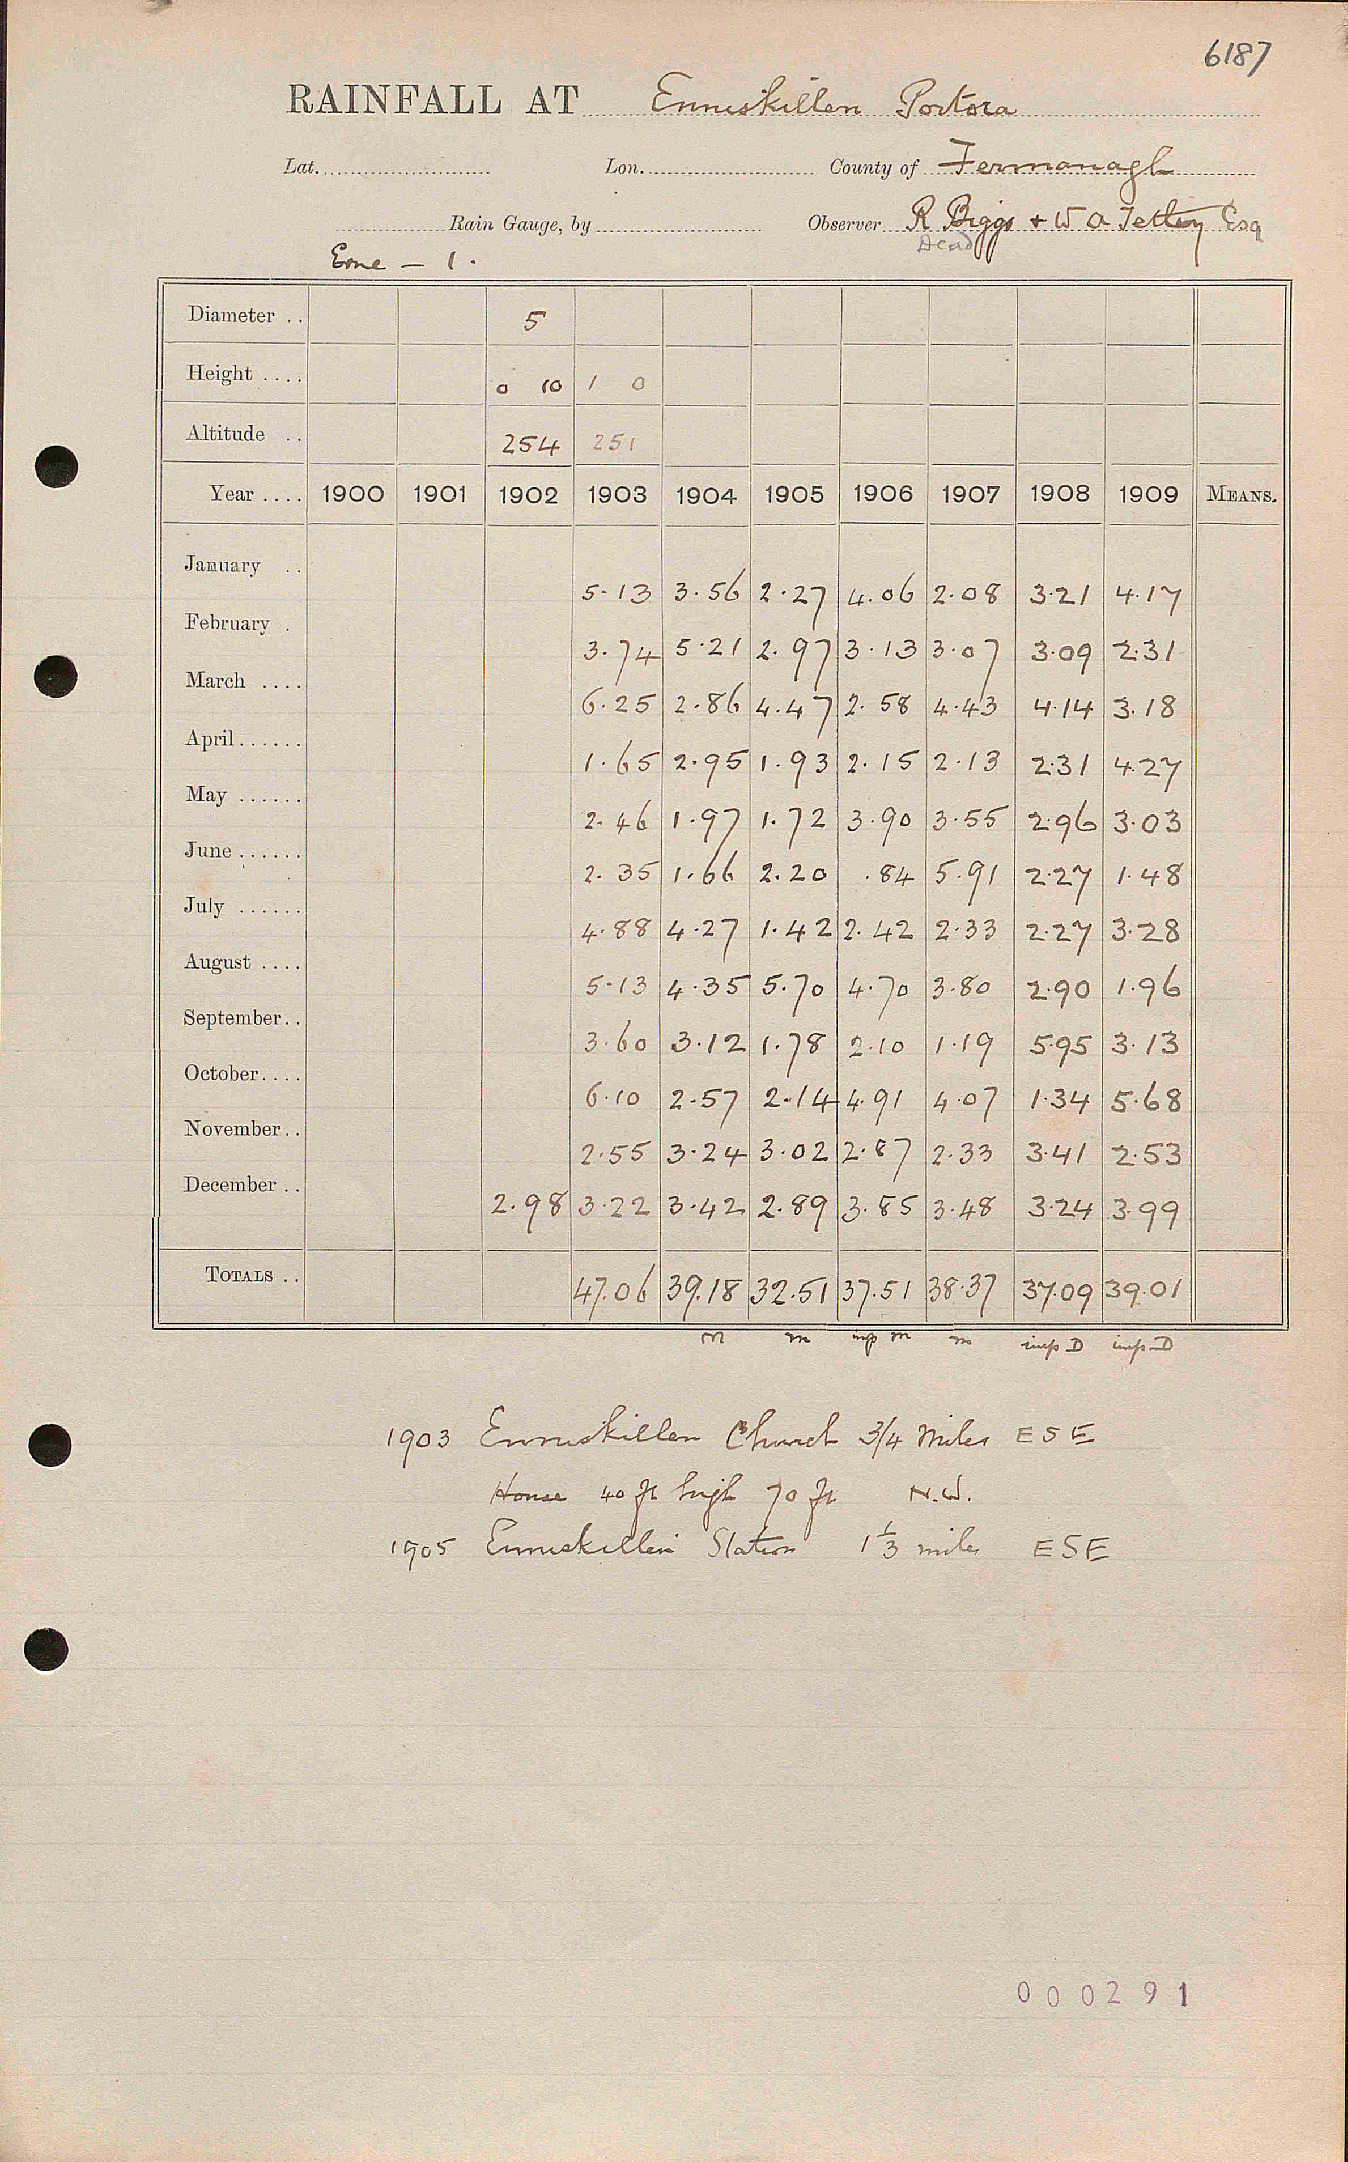 6187
RAINFALL AT Enniskillen Portora
Lat. Lon. County of Fermanagh
Rain Gauge, by Observer R Biggs + W A Tetley Esq
Dead
Erne - 1.
Diameter .. 5
Height .... 0 10 1 0
Altitude .. 254 251
Year .... 1900 1901 1902 1903 1904 1905 1906 1907 1908 1909 MEANS.
January .. 5.13 3.56 2.27 4.06 2.08 3.21 4.17
February . 3.74 5.21 2.97 3.13 3.07 3.09 2.31
March .... 6.25 2.86 4.47 2.58 4.43 4.14 3.18
April...... 1.65 2.95 1.93 2.15 2.13 2.31 4.27
May ...... 2.46 1.97 1.72 3.90 3.55 2.96 3.03
June ...... 2.35 1.66 2.20 .84 5.91 2.27 1.48
July ...... 4.88 4.27 1.42 2.42 2.33 2.27 3.28
August .... 5.13 4.35 5.70 4.70 3.80 2.90 1.96
September.. 3.60 3.12 1.78 2.10 1.19 5.95 3.13
October.... 6.10 2.57 2.14 4.91 4.07 1.34 5.68
November.. 2.55 3.24 3.02 2.87 2.33 3.41 2.53
December .. 2.98 3.22 3.42 2.89 3.85 3.48 3.24 3.99
TOTALS .. 47.06 39.18 32.51 37.51 38.37 37.09 39.01
m m inp m m inp D inp D
1903 Enniskillen Church 3/4 Miles ESE
House 40 ft high 70 ft N.W.
1905 Enniskillen Station 1 1/3 miles ESE
000291